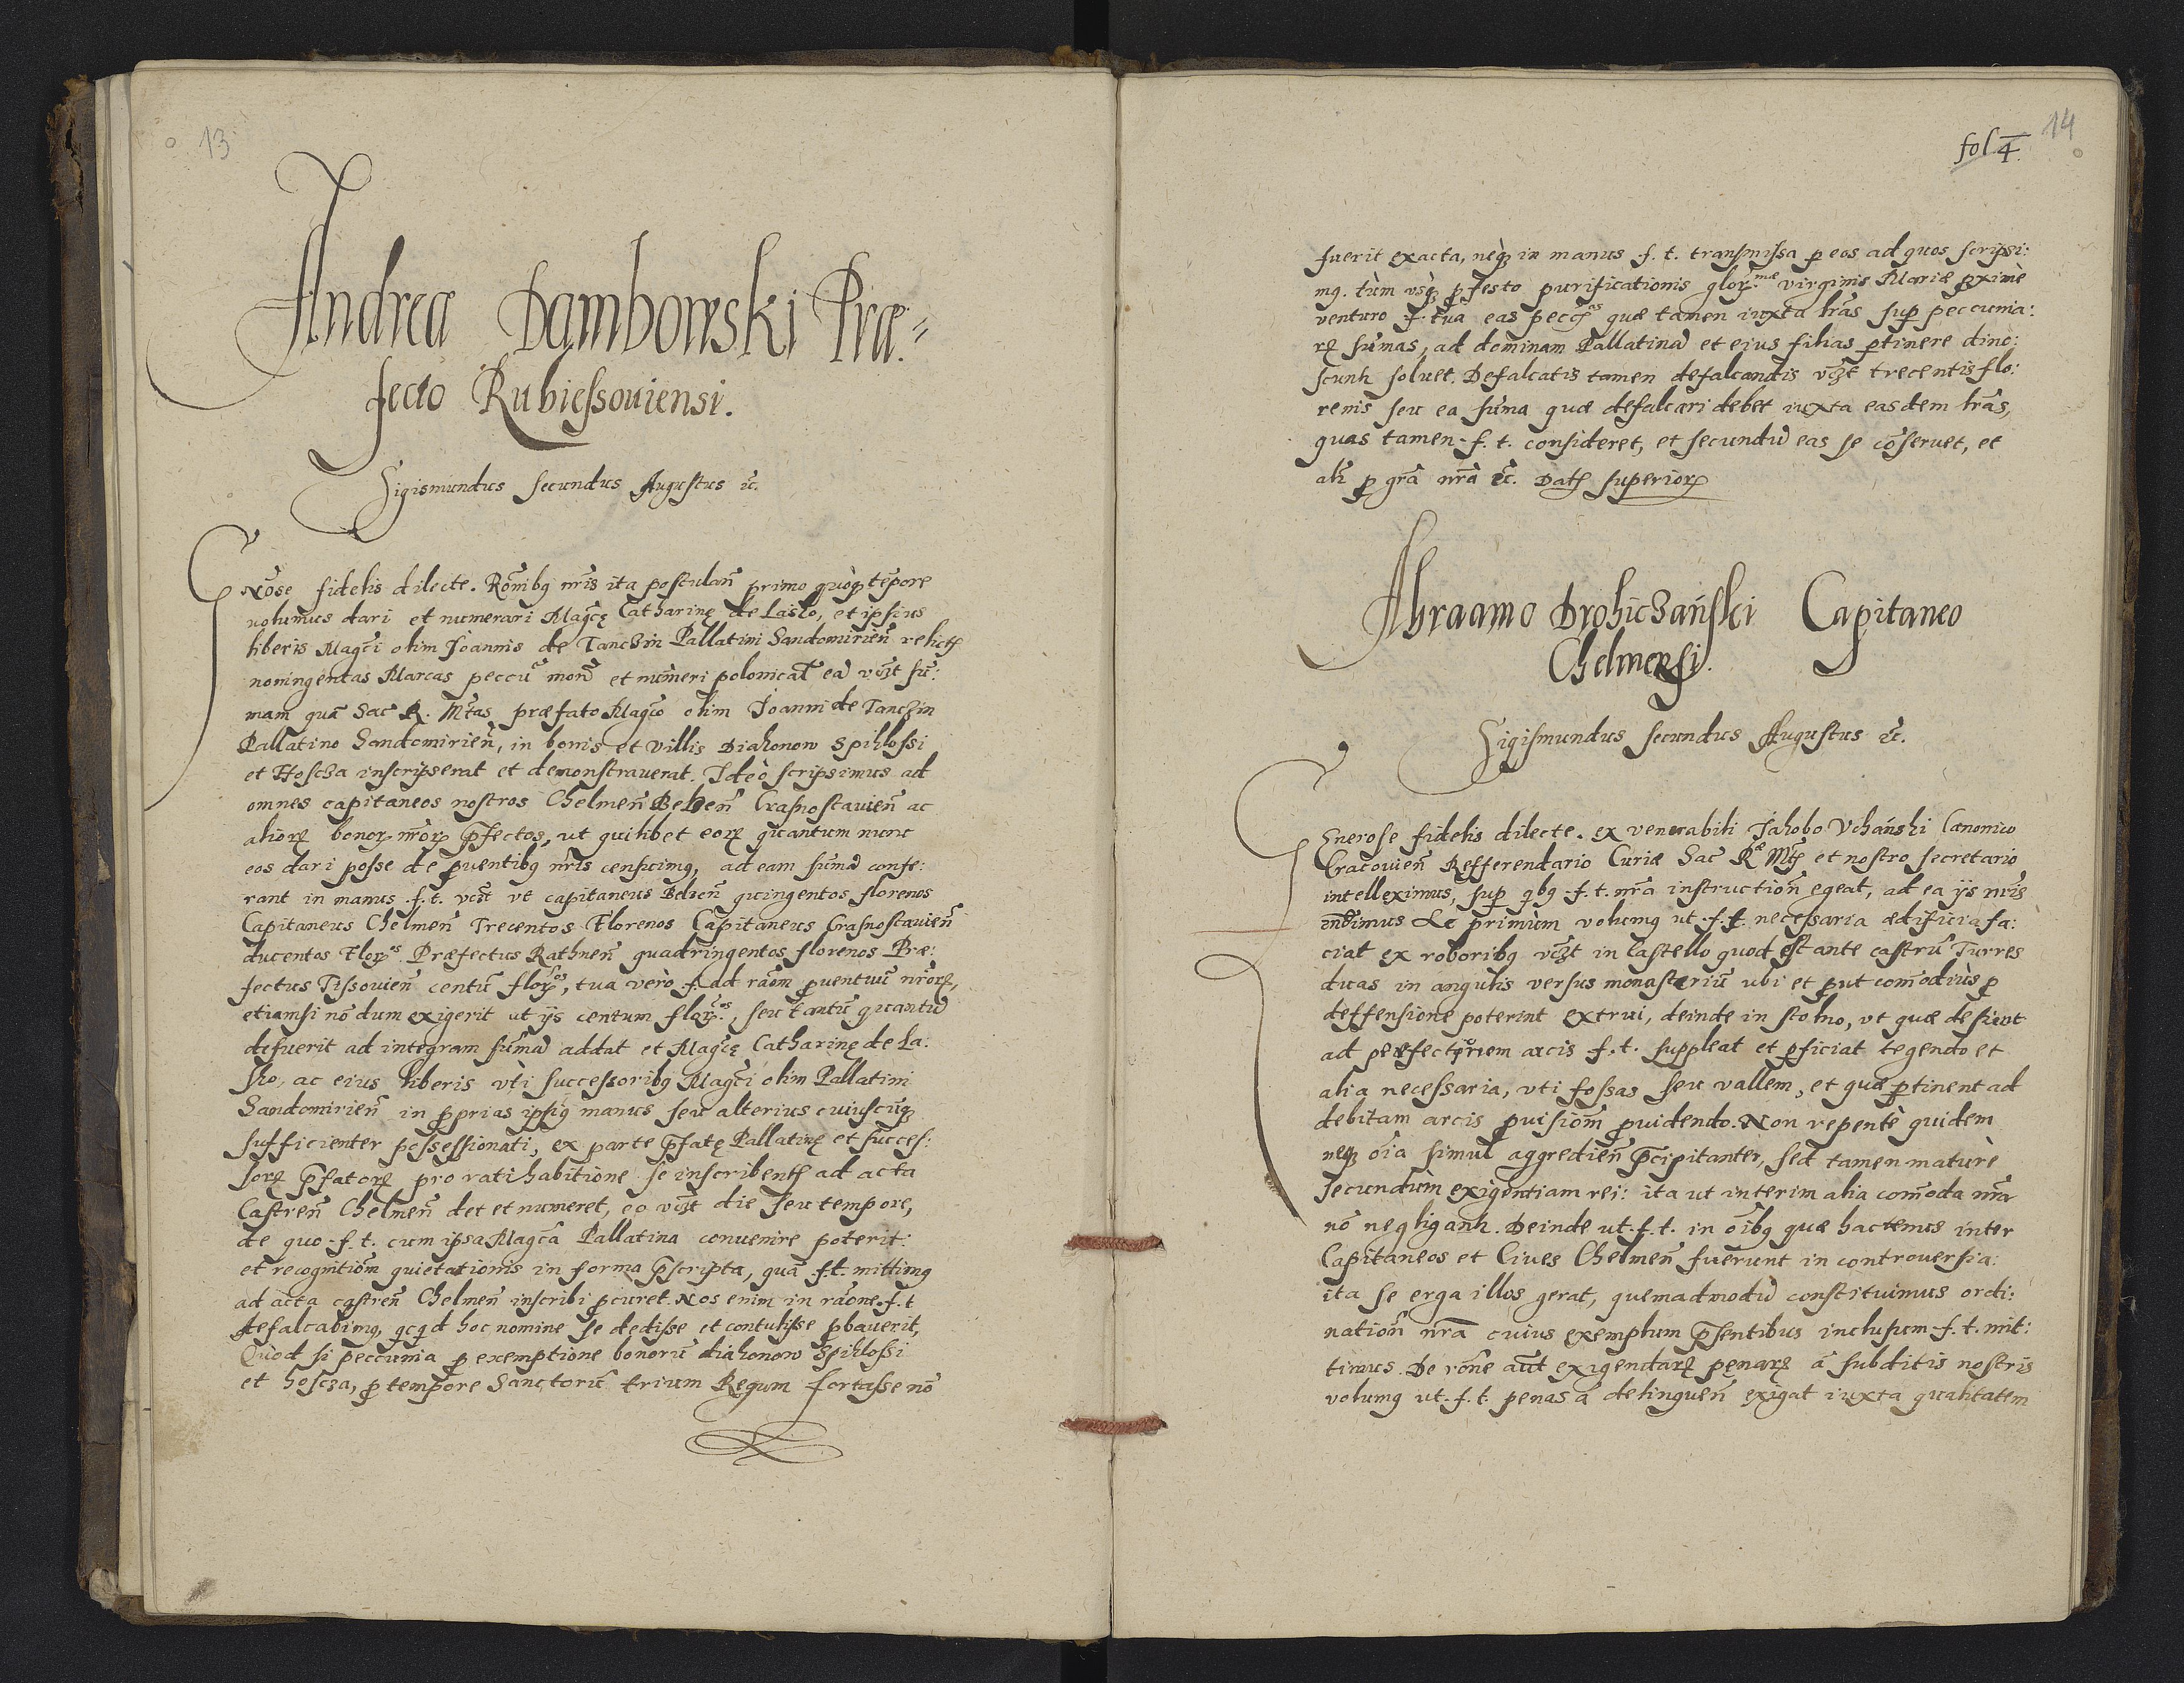 13
Andreæ Dambowski Præ⸗
fecto Rubiessouiensi.
Sigismundus secundus Augustus ꝛc̃.
GNõse fidelis dilecte. Rõnibꝫ nr̃is ita postulan̄ primo quòqꝫ tẽpore
uolumus dari et numerari Magc̃ę Catharinę de Laszo, et ipsius
liberis Magc̃i olim Joannis de Tanczin Pallatini Sandomirien̄ relictꝭ
noningentas Marcas peccu͂ mon̄ et nu͂meri polonical̄ ea͂ vcꝫt su͂:
mam qua͂ Sac̃ R. Mt͂as præfato Magc̃o olim Joanni de Tanczin
Pallatino Sandomirien̄, in bonis et villis Diakonow Spiklossi
et Hoscza inscripserat et demonstrauerat. Ideò scripsimus ad
omnes capitaneos nostros Chelmen̄ Belzen̄ Crasnostauien̄ ac
alioꝝ bonoꝝ nr̃oꝝ p̄fectos, ut quilibet eoꝝ quantum nunc
eos dari posse de ꝓuentibꝫ nr̃is censuimꝰ, ad eam su͂ma͂ confe:
rant in manus .f.t. vcꝫt vt capitaneus Belzen̄ quingentos florenos
Capitaneus Chelmen̄ Trecentos Florenos Capitaneus Crasnostauien̄
ducentos Floꝝos. Præfectus Rathnen̄ quadringentos florenos Præ:
fectus Tissouien̄ centu͂ floꝝos, tua verò f. ad rãom ꝓuentuu͂ nr̃oꝝ,
etiamsi nõ dum exigerit ut ijs centum floꝝcos, seu tantu͂ quantu͂
defuerit ad integram su͂ma͂ addat et Magc̃ę Catharinę de La:
sko, ac eius liberis vti successoribꝫ Magc̃i olim Pallatini
Sandomirien̄ in ꝓprias ipsiꝰ manus seu alterius cuiuscu͂qꝫ
sufficienter possessionati, ex parte p̄fatę Pallatinę et succes:
soꝝ p̄fatoꝝ pro ratihabitione se inscribentꝭ ad acta
Castren̄ Chelmen̄ det et numeret, eo vcꝫt die seu tempore,
de quo .f.t. cum ipsa Magc̃a Pallatina conuenire poterit:
et recognitiõm quietationis in forma p̄scripta, qua͂ f.t. mittimꝰ
ad acta castren̄ Chelmen̄ inscribi ꝓcuret. Nos enim in rãone .f.t
defalcabimꝰ, qcqd hoc nomine se dedisse et contulisse ꝓbauerit,
Quòd si peccunia ꝓ exemptione bonoru͂ diakonow Spiklossi
et hoscza, ꝓ tempore Sanctoru͂ trium Regum fortasse nõ
14
fol 4.
fuerit exacta, neqꝫ in manus .f.t. transmissa ꝑ eos ad quos scripsi:
mꝰ. tùm vsqꝫ ꝓ festo purificationis gloꝝmæ virginis Mariæ ꝓximè
venturo f. tua eas pecc͂as quæ tamen iuxta lr̃as sup̱ peccunia:
rꝝ su͂mas, ad dominam Pallatina͂ et eius filias ꝑtinere dino:
scunt̃ soluet. Defalcatis tamen defalcandis vcꝫt trecentis flo:
renis seu ea su͂ma quæ defalcari debet iuxta easdem lr̃as,
quas tamen .f.t. consideret, et secundu͂ eas se cõseruet, et
alr̃ ꝓ gr̃a nr̃a ꝛc̃. Datꝭ superioꝝ
Abraamo Drohiczański Capitaneo
Chelmensi.
Sigismundus secundus Augustus ꝛc̃.
GEnerose fidelis dilecte. ex venerabili Jakobo Vchański Canonico
Cracouien̄ Refferendario Curiæ Sac̃ Ræ Mtꝭ et nostro secretario
intelleximus, sup̱ qbꝫ .f.t. nr̃a instructiõn egeat, ad ea ijs nr̃is
Ac primùm volumꝰ ut .f.t. necessaria ædificia fa:
ciat ex roboribꝫ vcꝫt in Castello quod est ante castru͂ Turres
duas in angulis versus monasteriu͂ ubi et ꝓut com̃odiùs ꝓ
deffensione poterint extrui, deinde in stolno, vt quæ desunt
ad perfectionem arcis .f.t. suppleat et ꝑficiat tegendo et
alia necessaria, vti fossas seu vallem, et quæ ꝑtinent ad
debitam arcis ꝓuisiõm ꝓuidendo. Non repentè quidem
neqꝫ oi͂a simul aggredien̄ p̄cipitanter, sed tamen maturè
secundùm exigentiam rei: ita ut interim alia com̃oda nr̃a
nõ negligant̃. Deinde ut .f.t. in oi͂bꝫ quæ hactenus inter
Capitaneos et Ciues Chelmen̄ fuerunt in controuersia:
ita se erga illos gerat, quemadmodu͂ constituimus ordi:
natiõn nr̃a cuius exemplum p̄sentibus inclusum .f.t. mit:
timus. De rõne aut̃ exigendaꝝ pęnaꝝ à subditis nostris
volumꝰ ut .f.t. penas à delinquen̄ exigat iuxta qualitatem